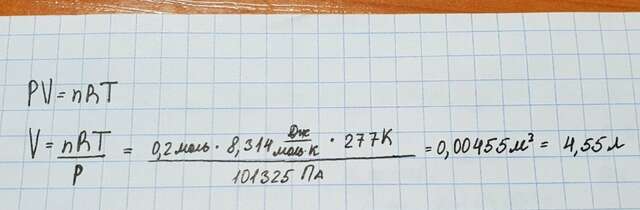 PV = nRT
V = nRT/P = 0,2 моль · 8,314 Дж/моль·К · 277К / 101325 Па = 0,00455 м³ = 4,55 л